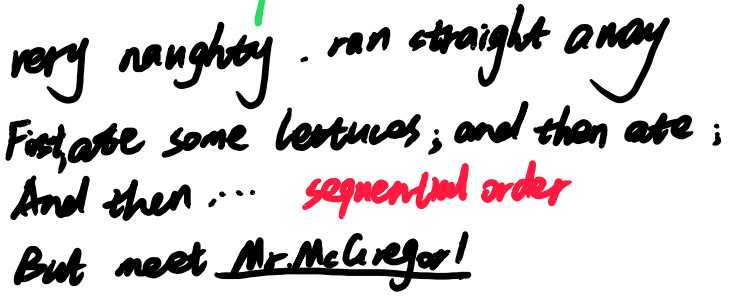 very naughty. ran straight away
First, ate some lettuces; and then ate;
And then ... sequential order
But meet Mr. McGregor!